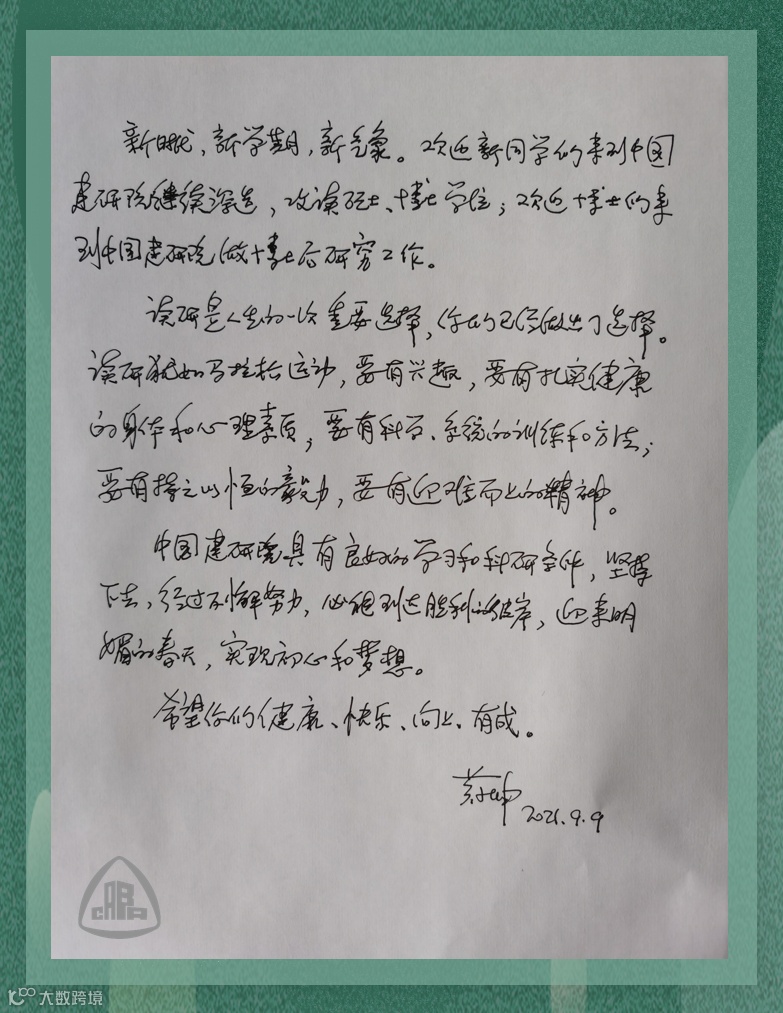 新时代，新学期，新气象。欢迎新同学们来到中国
建研院继续深造，攻读硕士、博士学位；欢迎博士们来
到中国建研院做博士后研究工作。
读研是人生的一次重要选择，你们已经做出了选择。
读研犹如马拉松运动，要有兴趣，要有扎实健康
的身体和心理素质，要有科学、系统的训练和方法；
要有持之以恒的毅力，要有迎难而上的精神。
中国建研院具有良好的学习和科研条件，坚持
下去，经过不懈努力，必能到达胜利的彼岸，迎来明
媚的春天，实现初心和梦想。
希望你们健康、快乐、向上、有成。
2021.9.9
CABR
大数跨境